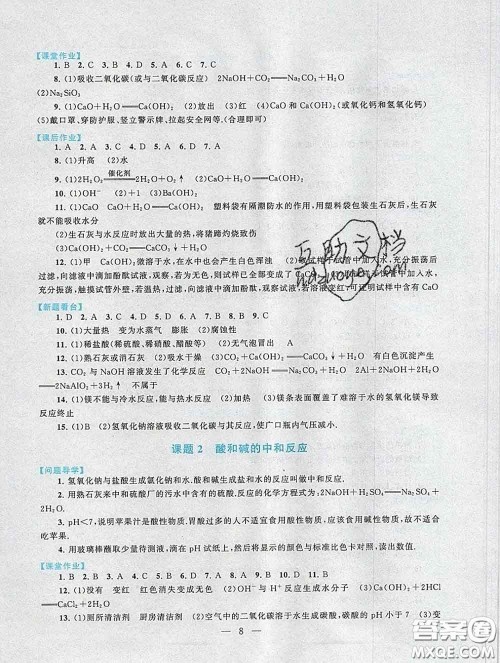 【课堂作业】
1. B 2. C 3. B 4. D 5. A 6. C 7. C
8. (1)吸收二氧化碳(或与二氧化碳反应) 2NaOH+CO₂══Na₂CO₃+H₂O
(2)Na₂SiO₃
9. (1)CaO+H₂O══Ca(OH)₂ (2)放出 (3)红 (4)CaO 和 Ca(OH)₂(或氧化钙和氢氧化钙)
(5)戴口罩、穿防护服、竖立警示牌、拉起安全网等.(合理即可)
【课后作业】
1. A 2. A 3. C 4. C 5. D 6. D 7. C
8. (1)升高 (2)水
9. (1)2H₂O₂ 催化剂══ 2H₂O+O₂↑ (2)CaO+H₂O══Ca(OH)₂
10. (1)OH⁻ (2)-1 (3)Ba(OH)₂
11. (1)CaO CaO+H₂O══Ca(OH)₂ 塑料袋有隔潮防水的作用,用塑料袋包装生石灰后,生石灰
就不能吸收水分
(2)生石灰与水反应时放出大量的热,将猪蹄灼烧致伤
(3)CaO+H₂O══Ca(OH)₂
12. (1)甲 Ca(OH)₂微溶于水,在水中也会产生白色浑浊 (2)取 样于试管中加入水,充分振荡后
过滤,向滤液中滴加酚酞试液,观察,若为无色,则试样已全部变成了CaCO₃
充分振荡,触摸试管外壁,若温热,过滤,向滤液中滴加酚酞试液,观察,若溶液变红,可证明试样中含有 CaO
【新题看台】
10. (1)大量热 变为水蒸气 膨胀 (2)腐蚀性
11. (1)稀盐酸(稀硫酸、稀硝酸、醋酸等) (2)无气泡冒出 A
12. (1)熟石灰或消石灰 (2)吸水干燥 (3)CO₂+Ca(OH)₂══CaCO₃↓+H₂O 有白色沉淀产生
13. CO₂ 与 NaOH 溶液发生了化学反应 CO₂+2NaOH══Na₂CO₃+H₂O 2Al+2NaOH+2H₂O
══2NaAlO₂+3H₂↑ 不属于
14. (1)镁不能与冷水反应,能与热水反应 (2)氢气 (3)镁条表面覆盖了难溶于水的氢氧化镁导致
反应终止
15. (1)B (2)氢氧化钠溶液吸收二氧化碳并与其反应,使广口瓶内气压减小.
课题 2 酸和碱的中和反应
【问题导学】
1. 氢氧化钠与盐酸生成氯化钠和水.酸和碱生成盐和水的反应叫做中和反应.
2. 用熟石灰来中和硫酸厂的污水中含有的硫酸,反应的化学方程式为:2NaOH+H₂SO₄══Na₂SO₄
+2H₂O
3. pH<7,说明苹果汁是酸性物质.胃酸过多的人不适宜食用酸性物质,应该食用碱性物质,故不适合
吃苹果.
4. 用玻璃棒蘸取少量待测液,滴在 pH 试纸上,然后将显示的颜色与标准比色卡对照,读出数值.
【课堂作业】
1. B 2. A 3. D 4. D 5. D 6. C 7. B 8. C 9. A 10. A 11. B
12. (1)没有 变红 红色消失变成无色 (2)OH⁻ 与 H⁺反应生成水分子 (3)Ca(OH)₂+2HCl
══CaCl₂+2H₂O
13. (1)厕所清洁剂 厨房清洁剂 (2)空气中的二氧化碳溶于水生成碳酸,碳酸的 pH 小于 7 (3)变
8
互助文档
答案圈
MXQE.COM